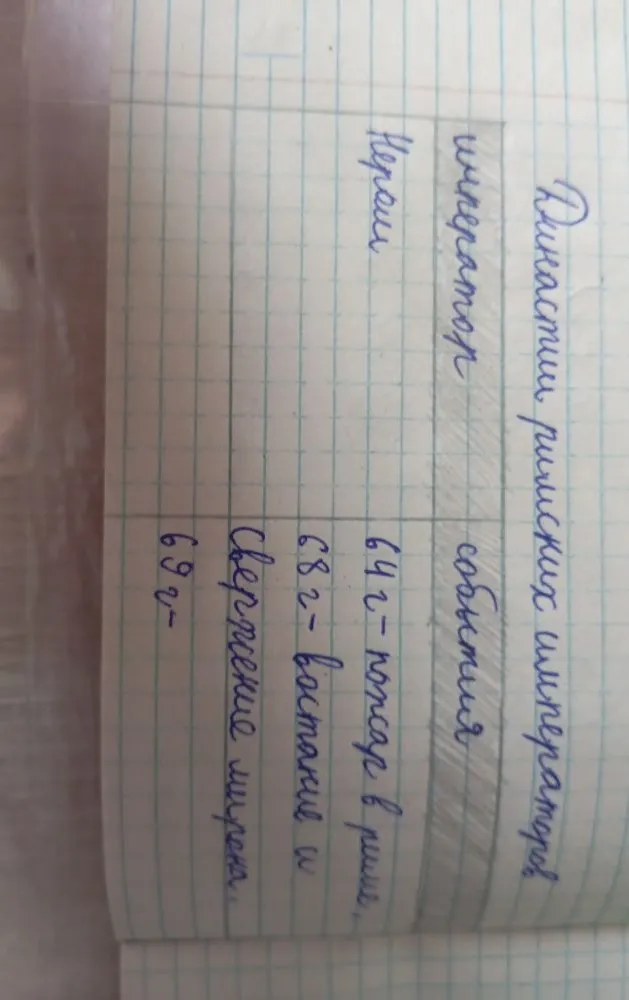 Династии римских императоров
император события
Нерон 64 г - пожар в риме,
68 г - востание и
свержение мирона.
69 г -